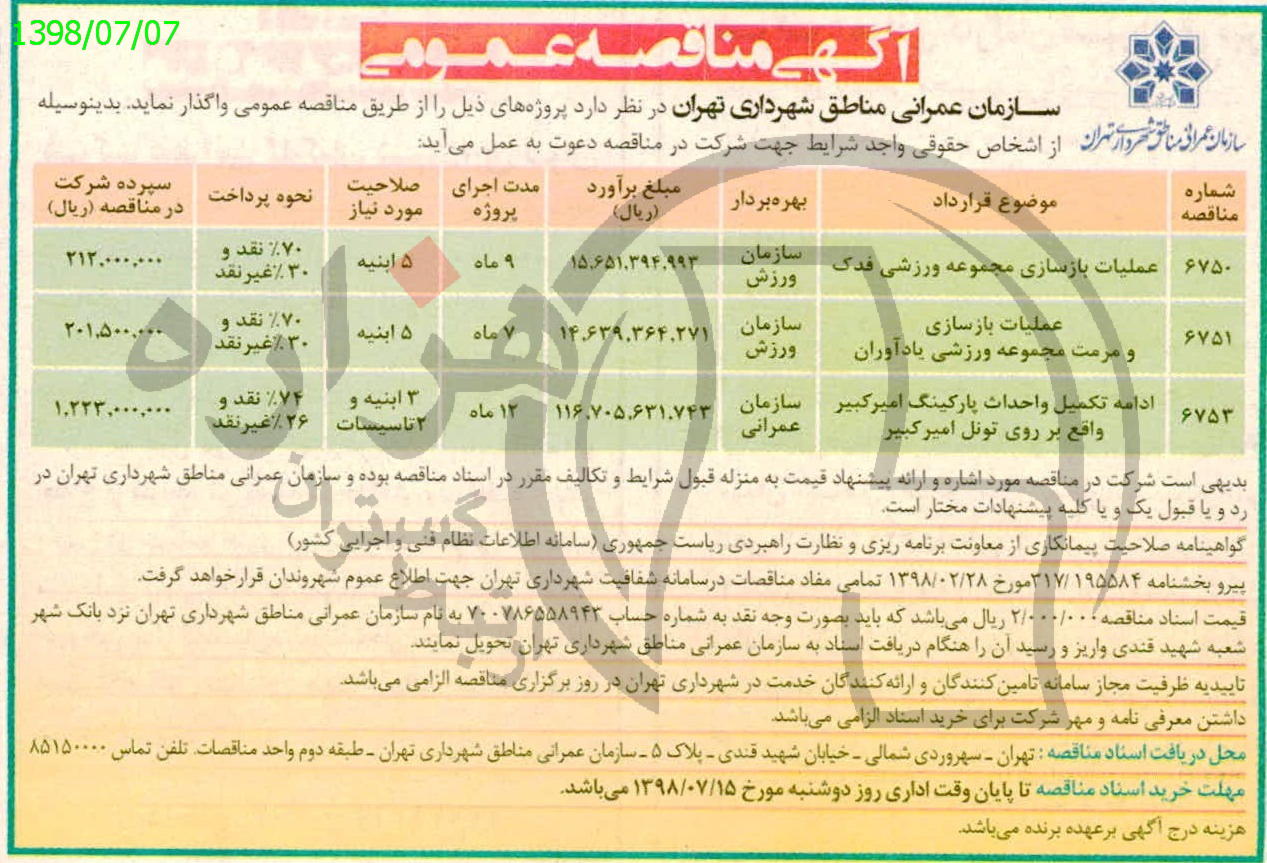 1398/07/07
آگهی مناقصه عمومی
سازمان عمرانی مناطق شهرداری تهران
سازمان عمرانی مناطق شهرداری تهران در نظر دارد پروژه‌های ذیل را از طریق مناقصه عمومی واگذار نماید. بدینوسیله
از اشخاص حقوقی واجد شرایط جهت شرکت در مناقصه دعوت به عمل می‌آید:
شماره مناقصه موضوع قرارداد بهره‌بردار مبلغ برآورد (ریال) مدت اجرای پروژه صلاحیت مورد نیاز نحوه پرداخت سپرده شرکت در مناقصه (ریال)
۶۷۵۰ عملیات بازسازی مجموعه ورزشی فدک سازمان ورزش ۱۵.۶۵۱.۳۹۴.۹۹۳ ۹ ماه ۵ ابنیه ۷۰٪ نقد و ۳۰٪ غیرنقد ۲۱۲.۰۰۰.۰۰۰
۶۷۵۱ عملیات بازسازی و مرمت مجموعه ورزشی یادآوران سازمان ورزش ۱۴.۶۳۹.۳۶۴.۲۷۱ ۷ ماه ۵ ابنیه ۷۰٪ نقد و ۳۰٪ غیرنقد ۲۰۱.۵۰۰.۰۰۰
۶۷۵۳ ادامه تکمیل واحداث پارکینگ امیرکبیر واقع بر روی تونل امیرکبیر سازمان عمرانی ۱۱۶.۷۰۵.۶۳۱.۷۴۳ ۱۲ ماه ۳ ابنیه و ۲تاسیسات ۷۴٪ نقد و ۲۶٪ غیرنقد ۱.۲۲۳.۰۰۰.۰۰۰
بدیهی است شرکت در مناقصه مورد اشاره و ارائه پیشنهاد قیمت به منزله قبول شرایط و تکالیف مقرر در اسناد مناقصه بوده و سازمان عمرانی مناطق شهرداری تهران در
رد و یا قبول یک و یا کلیه پیشنهادات مختار است.
گواهینامه صلاحیت پیمانکاری از معاونت برنامه ریزی و نظارت راهبردی ریاست جمهوری (سامانه اطلاعات نظام فنی و اجرایی کشور)
پیرو بخشنامه ۳۱۷/۱۹۵۵۸۴مورخ ۱۳۹۸/۰۲/۲۸ تمامی مفاد مناقصات درسامانه شفافیت شهرداری تهران جهت اطلاع عموم شهروندان قرارخواهد گرفت.
قیمت اسناد مناقصه ۲/۰۰۰/۰۰۰ ریال می‌باشد که باید بصورت وجه نقد به شماره حساب ۷۰۰۷۸۶۵۵۸۹۴۳ به نام سازمان عمرانی مناطق شهرداری تهران نزد بانک شهر
شعبه شهید قندی واریز و رسید آن را هنگام دریافت اسناد به سازمان عمرانی مناطق شهرداری تهران تحویل نمایند.
تاییدیه ظرفیت مجاز سامانه تامین‌کنندگان و ارائه‌کنندگان خدمت در شهرداری تهران در روز برگزاری مناقصه الزامی می‌باشد.
داشتن معرفی نامه و مهر شرکت برای خرید اسناد الزامی می‌باشد.
محل دریافت اسناد مناقصه : تهران ـ سهروردی شمالی ـ خیابان شهید قندی ـ پلاک ۵ ـ سازمان عمرانی مناطق شهرداری تهران ـ طبقه دوم واحد مناقصات. تلفن تماس ۸۵۱۵۰۰۰۰
مهلت خرید اسناد مناقصه تا پایان وقت اداری روز دوشنبه مورخ ۱۳۹۸/۰۷/۱۵ می‌باشد.
هزینه درج آگهی برعهده برنده می‌باشد.